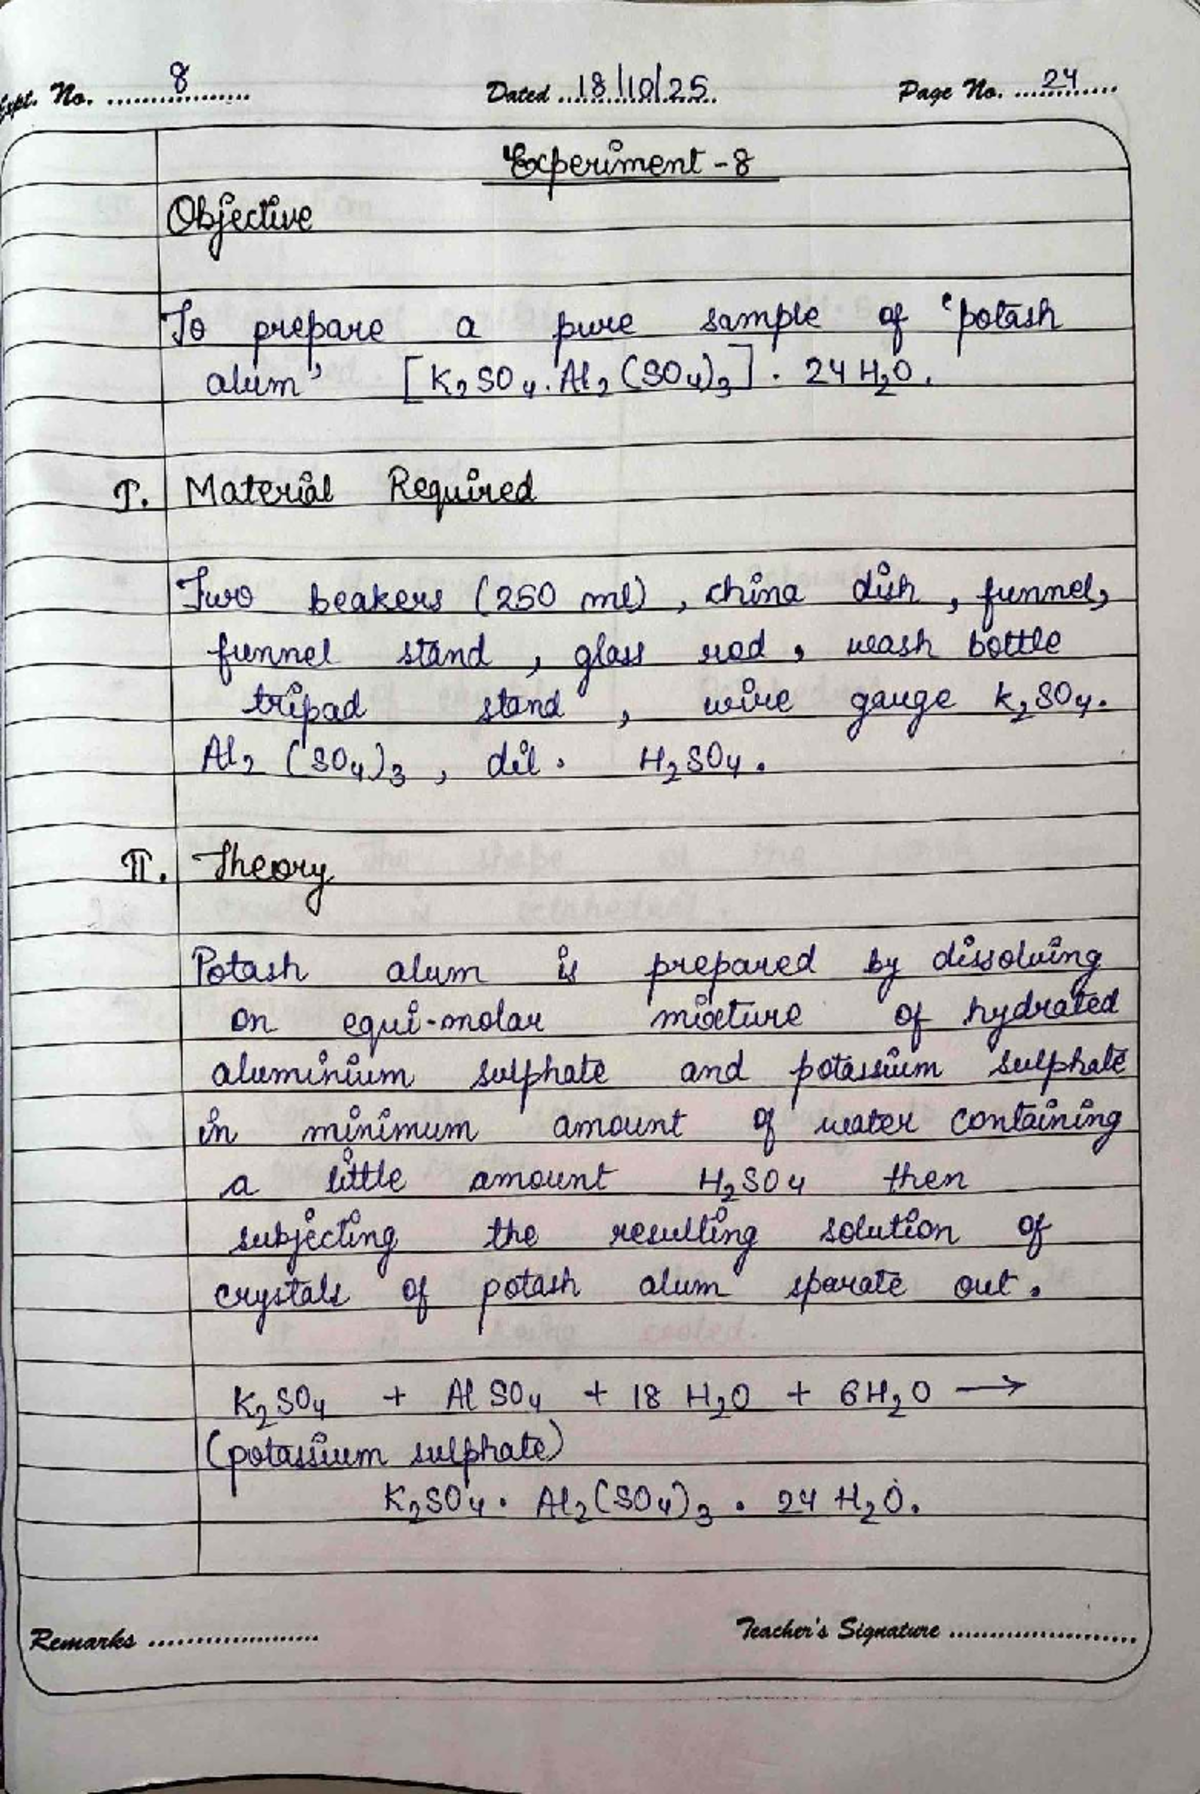 Expt. No. 8 Dated 18/10/25 Page No. 24
Experiment - 8
Objective
To prepare a pure sample of "potash
alum" [K₂SO₄.Al₂(SO₄)₃]. 24H₂O.
I. Material Required
Two beakers (250 ml), china dish, funnel,
funnel stand, glass rod, wash bottle
tripad stand, wire gauge K₂SO₄.
Al₂(SO₄)₃, dil. H₂SO₄.
II. Theory
Potash alum is prepared by dissolving
on equi-molar mixture of hydrated
aluminium sulphate and potassium sulphate
in minimum amount of water containing
a little amount H₂SO₄ then
subjecting the resulting solution of
crystals of potash alum sparate out.
K₂SO₄ + Al SO₄ + 18 H₂O + 6H₂O →
(potassium sulphate)
K₂SO₄. Al₂(SO₄)₃. 24 H₂O.
Remarks Teacher's Signature